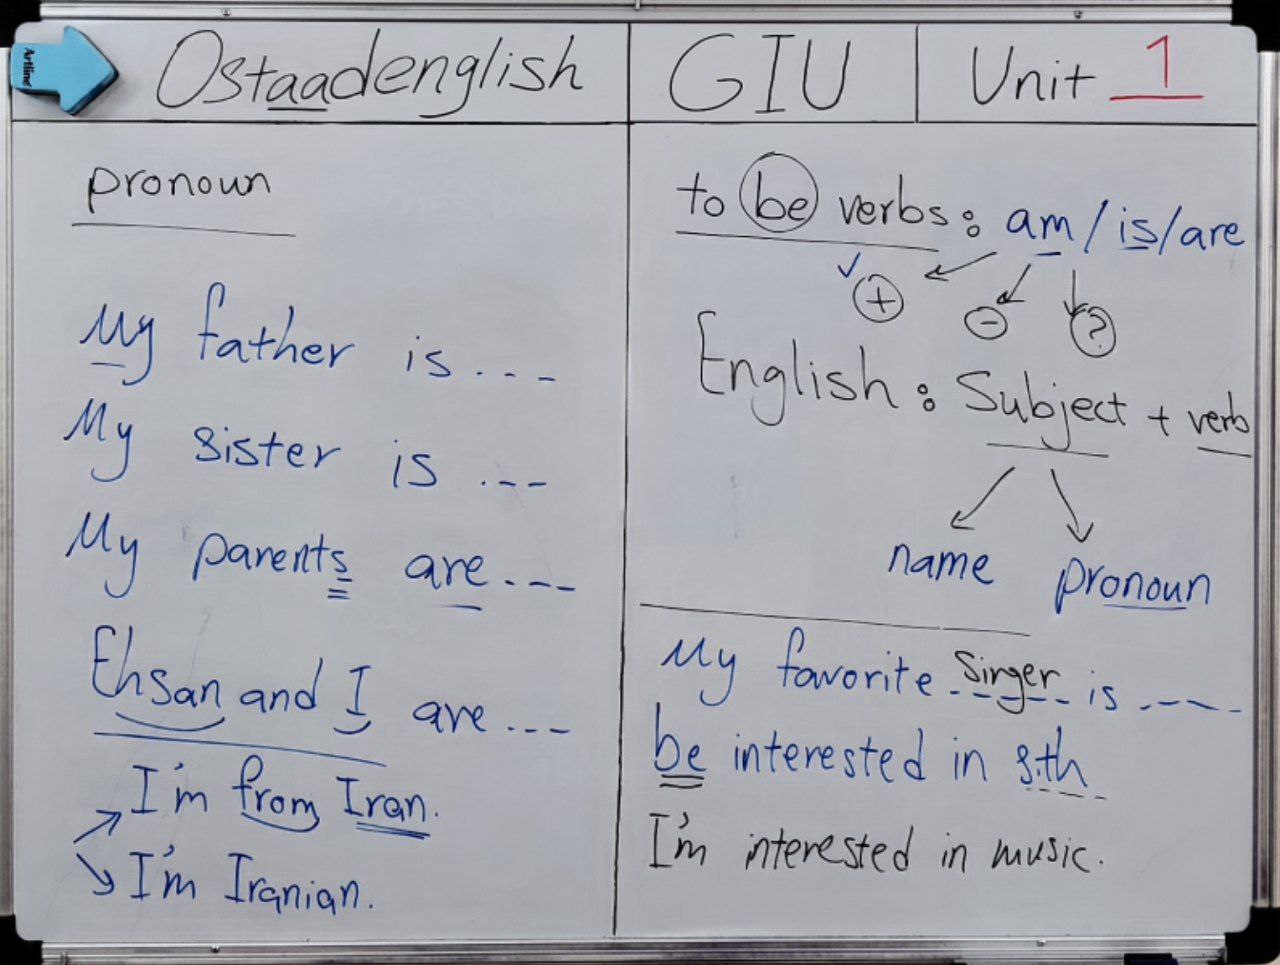 Artline
Ostaadenglish
GIU
Unit 1
pronoun
My father is ...
My sister is ...
My parents are ...
Ehsan and I are ...
I'm from Iran.
I'm Iranian.
to be verbs: am/is/are
+ - ?
English: Subject + verb
name pronoun
My favorite singer is ....
be interested in s.th
I'm interested in music.